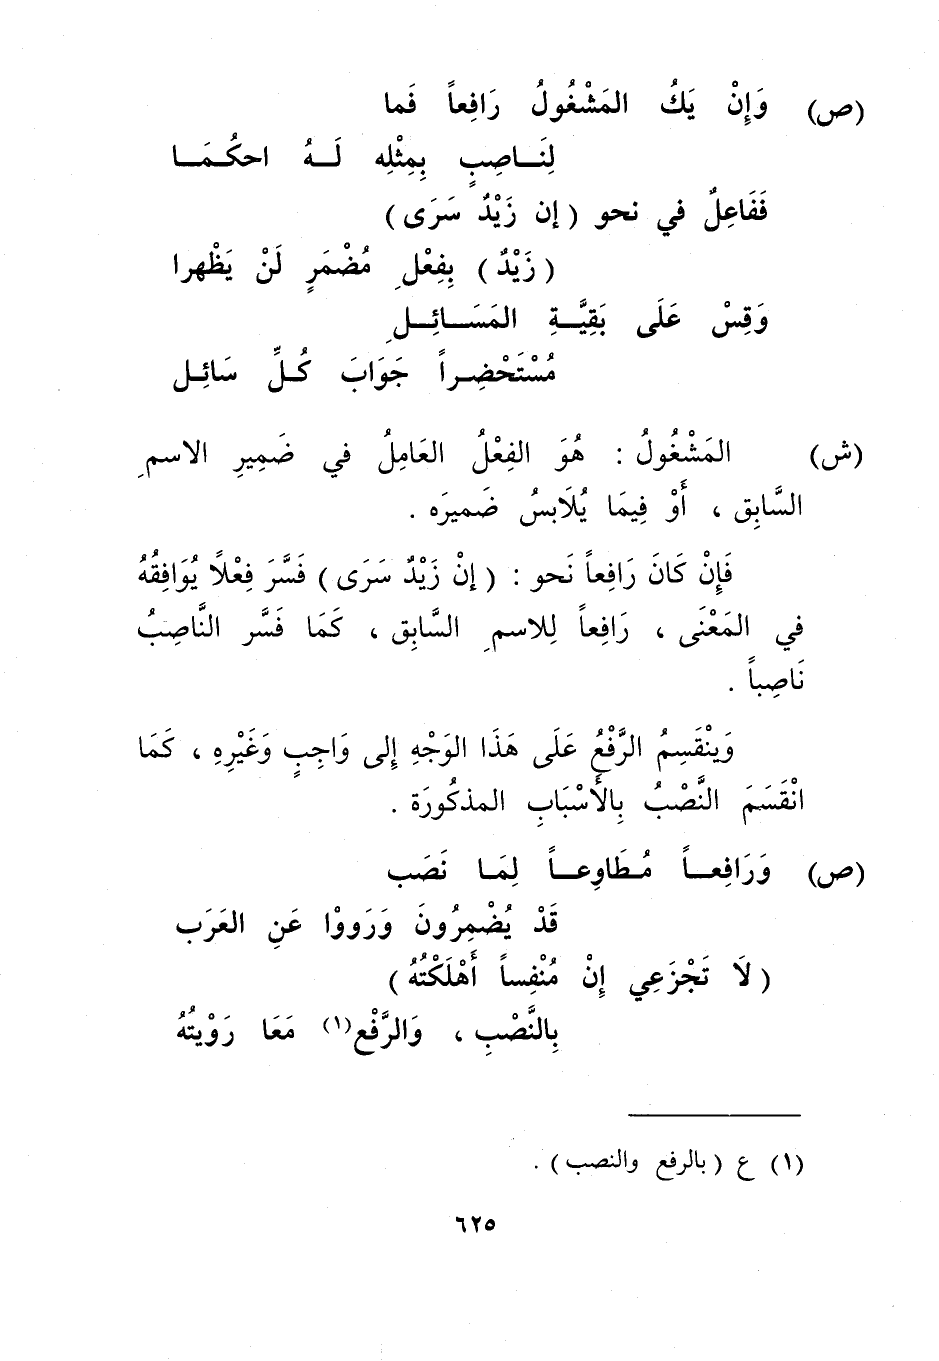 (ص) وَإِنْ يَكُ المَشْغُولُ رَافِعاً فَما
لِنَــاصِبٍ بِمِثْلِه لَــهُ احكُـمَــا
فَفَاعِلٌ في نحو ( إن زَيْدٌ سَرَى )
( زَيْدٌ ) بِفِعْلٍ مُضْمَرٍ لَنْ يَظْهرا
وَقِسْ عَلَى بَقِيَّــةِ المَسَــائِــلِ
مُسْتَحْضِـراً جَوَابَ كُـلِّ سَائِـل
(ش) المَشْغُولُ : هُوَ الفِعْلُ العَامِلُ في ضَمِيرِ الاسمِ
السَّابِق ، أَوْ فِيمَا يُلَابسُ ضَميرَه .
فَإِنْ كَانَ رَافِعاً نَحو : ( إنْ زَيْدٌ سَرَى ) فَسَّرَ فِعْلاً يُوَافِقُهُ
في المَعْنَى ، رَافِعاً لِلاسمِ السَّابِق ، كَمَا فَسَّر النَّاصِبُ
نَاصِباً .
وَيَنْقَسِمُ الرَّفْعُ عَلَى هَذَا الوَجْهِ إِلى وَاجِبٍ وَغَيْرِهِ ، كَمَا
انْقَسَمَ النَّصْبُ بِالأَسْبَابِ المذكُورَة .
(ص) وَرَافِعــاً مُـطَاوِعــاً لِمَـا نَصَب
قَدْ يُضْمِرُونَ وَرَووْا عَنِ العَرَب
( لَا تَجْزَعِي إِنْ مُنْفِساً أَهْلَكْتُهُ )
بِالنَّصْبِ ، وَالرَّفْع(١) مَعَا رَوْيتُهُ
(١) ع ( بالرفع والنصب ) .
٦٢٥